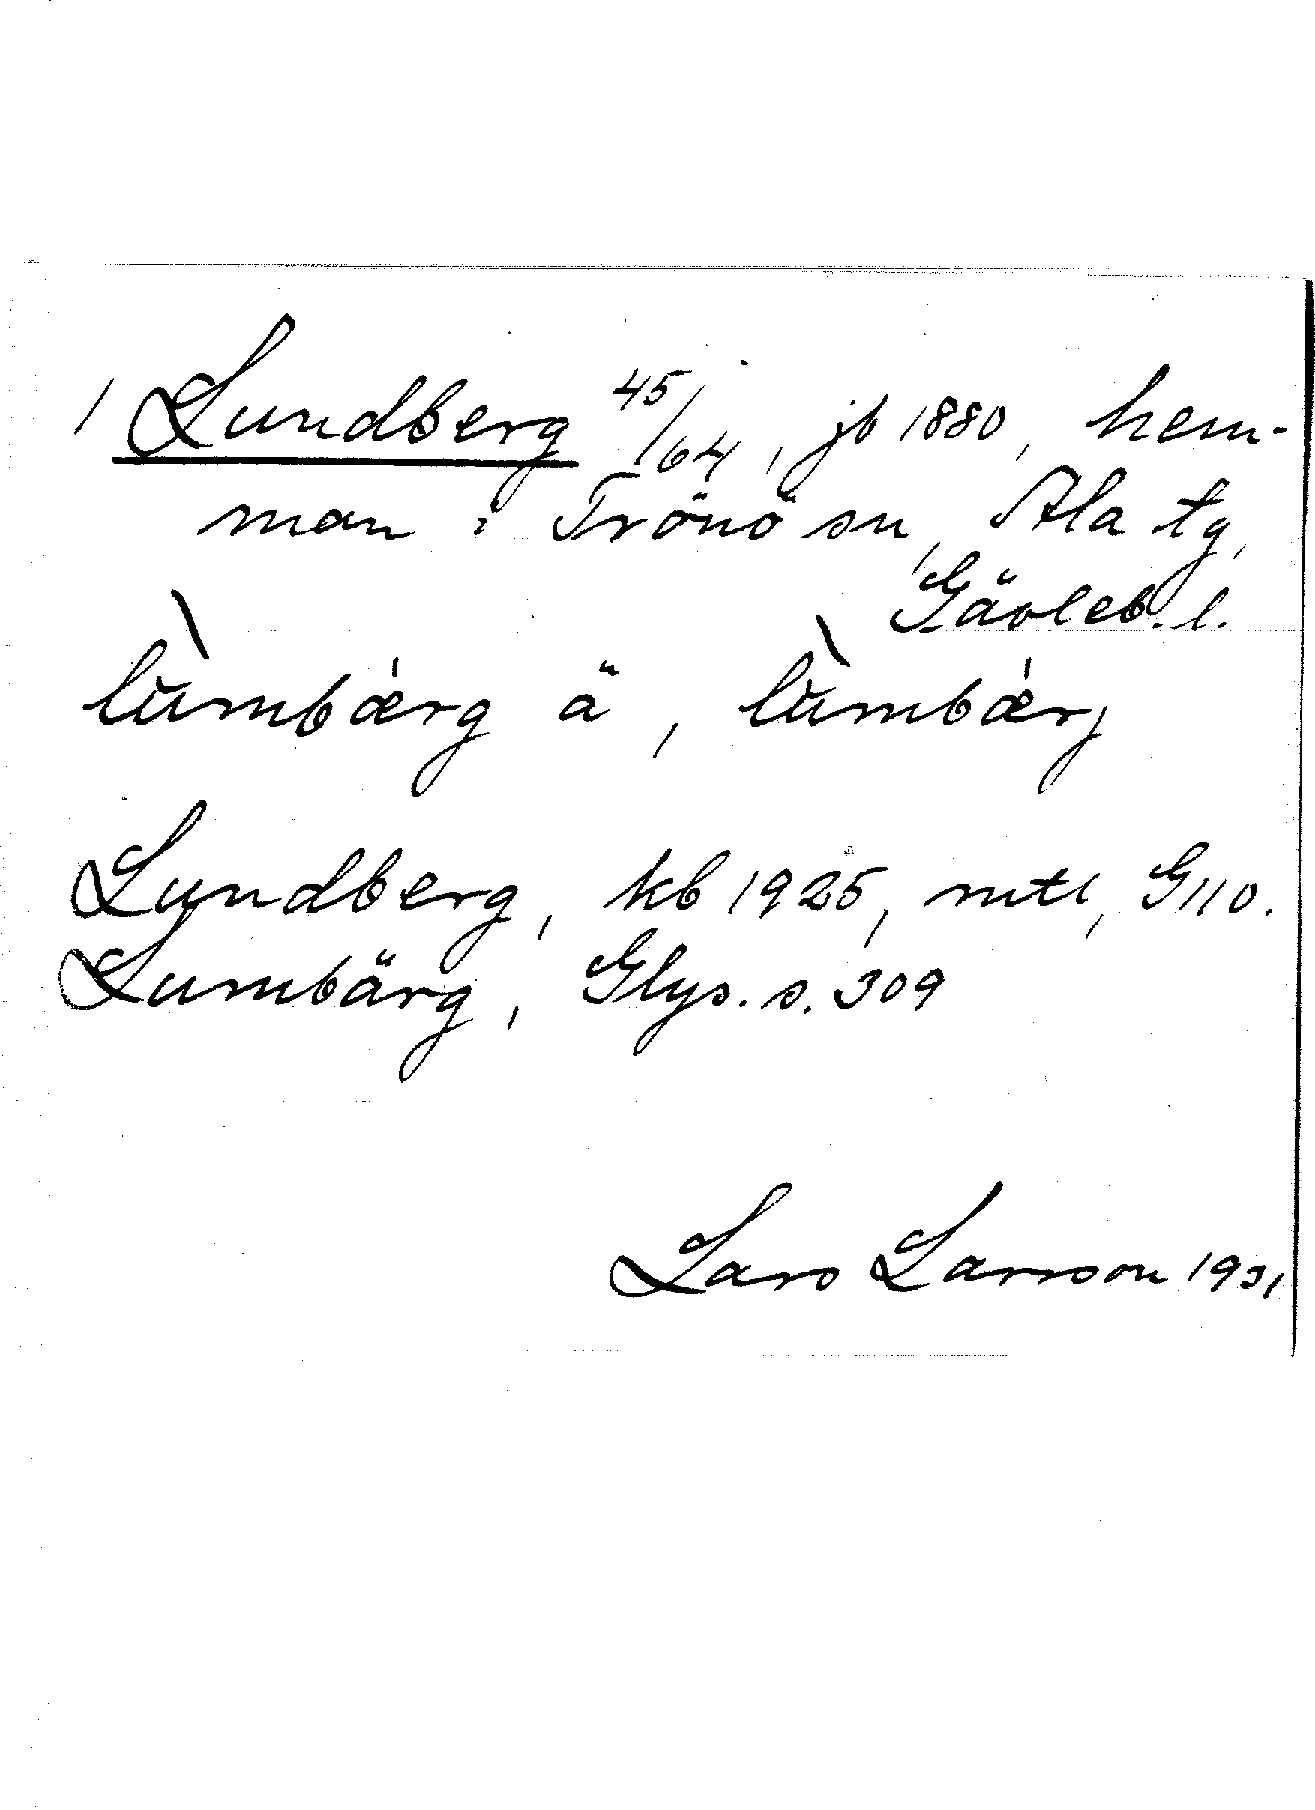 1 Lundberg 45/64, jb 1880, hem-
man i Trönö sn, Ala tg,
Gävleb. l.
lùmbǽrg ä, lùmbǽrj
Lundberg, kb 1925, mtl, G110.
Lumbärg, Glys. s. 309
Lars Larsson 1931